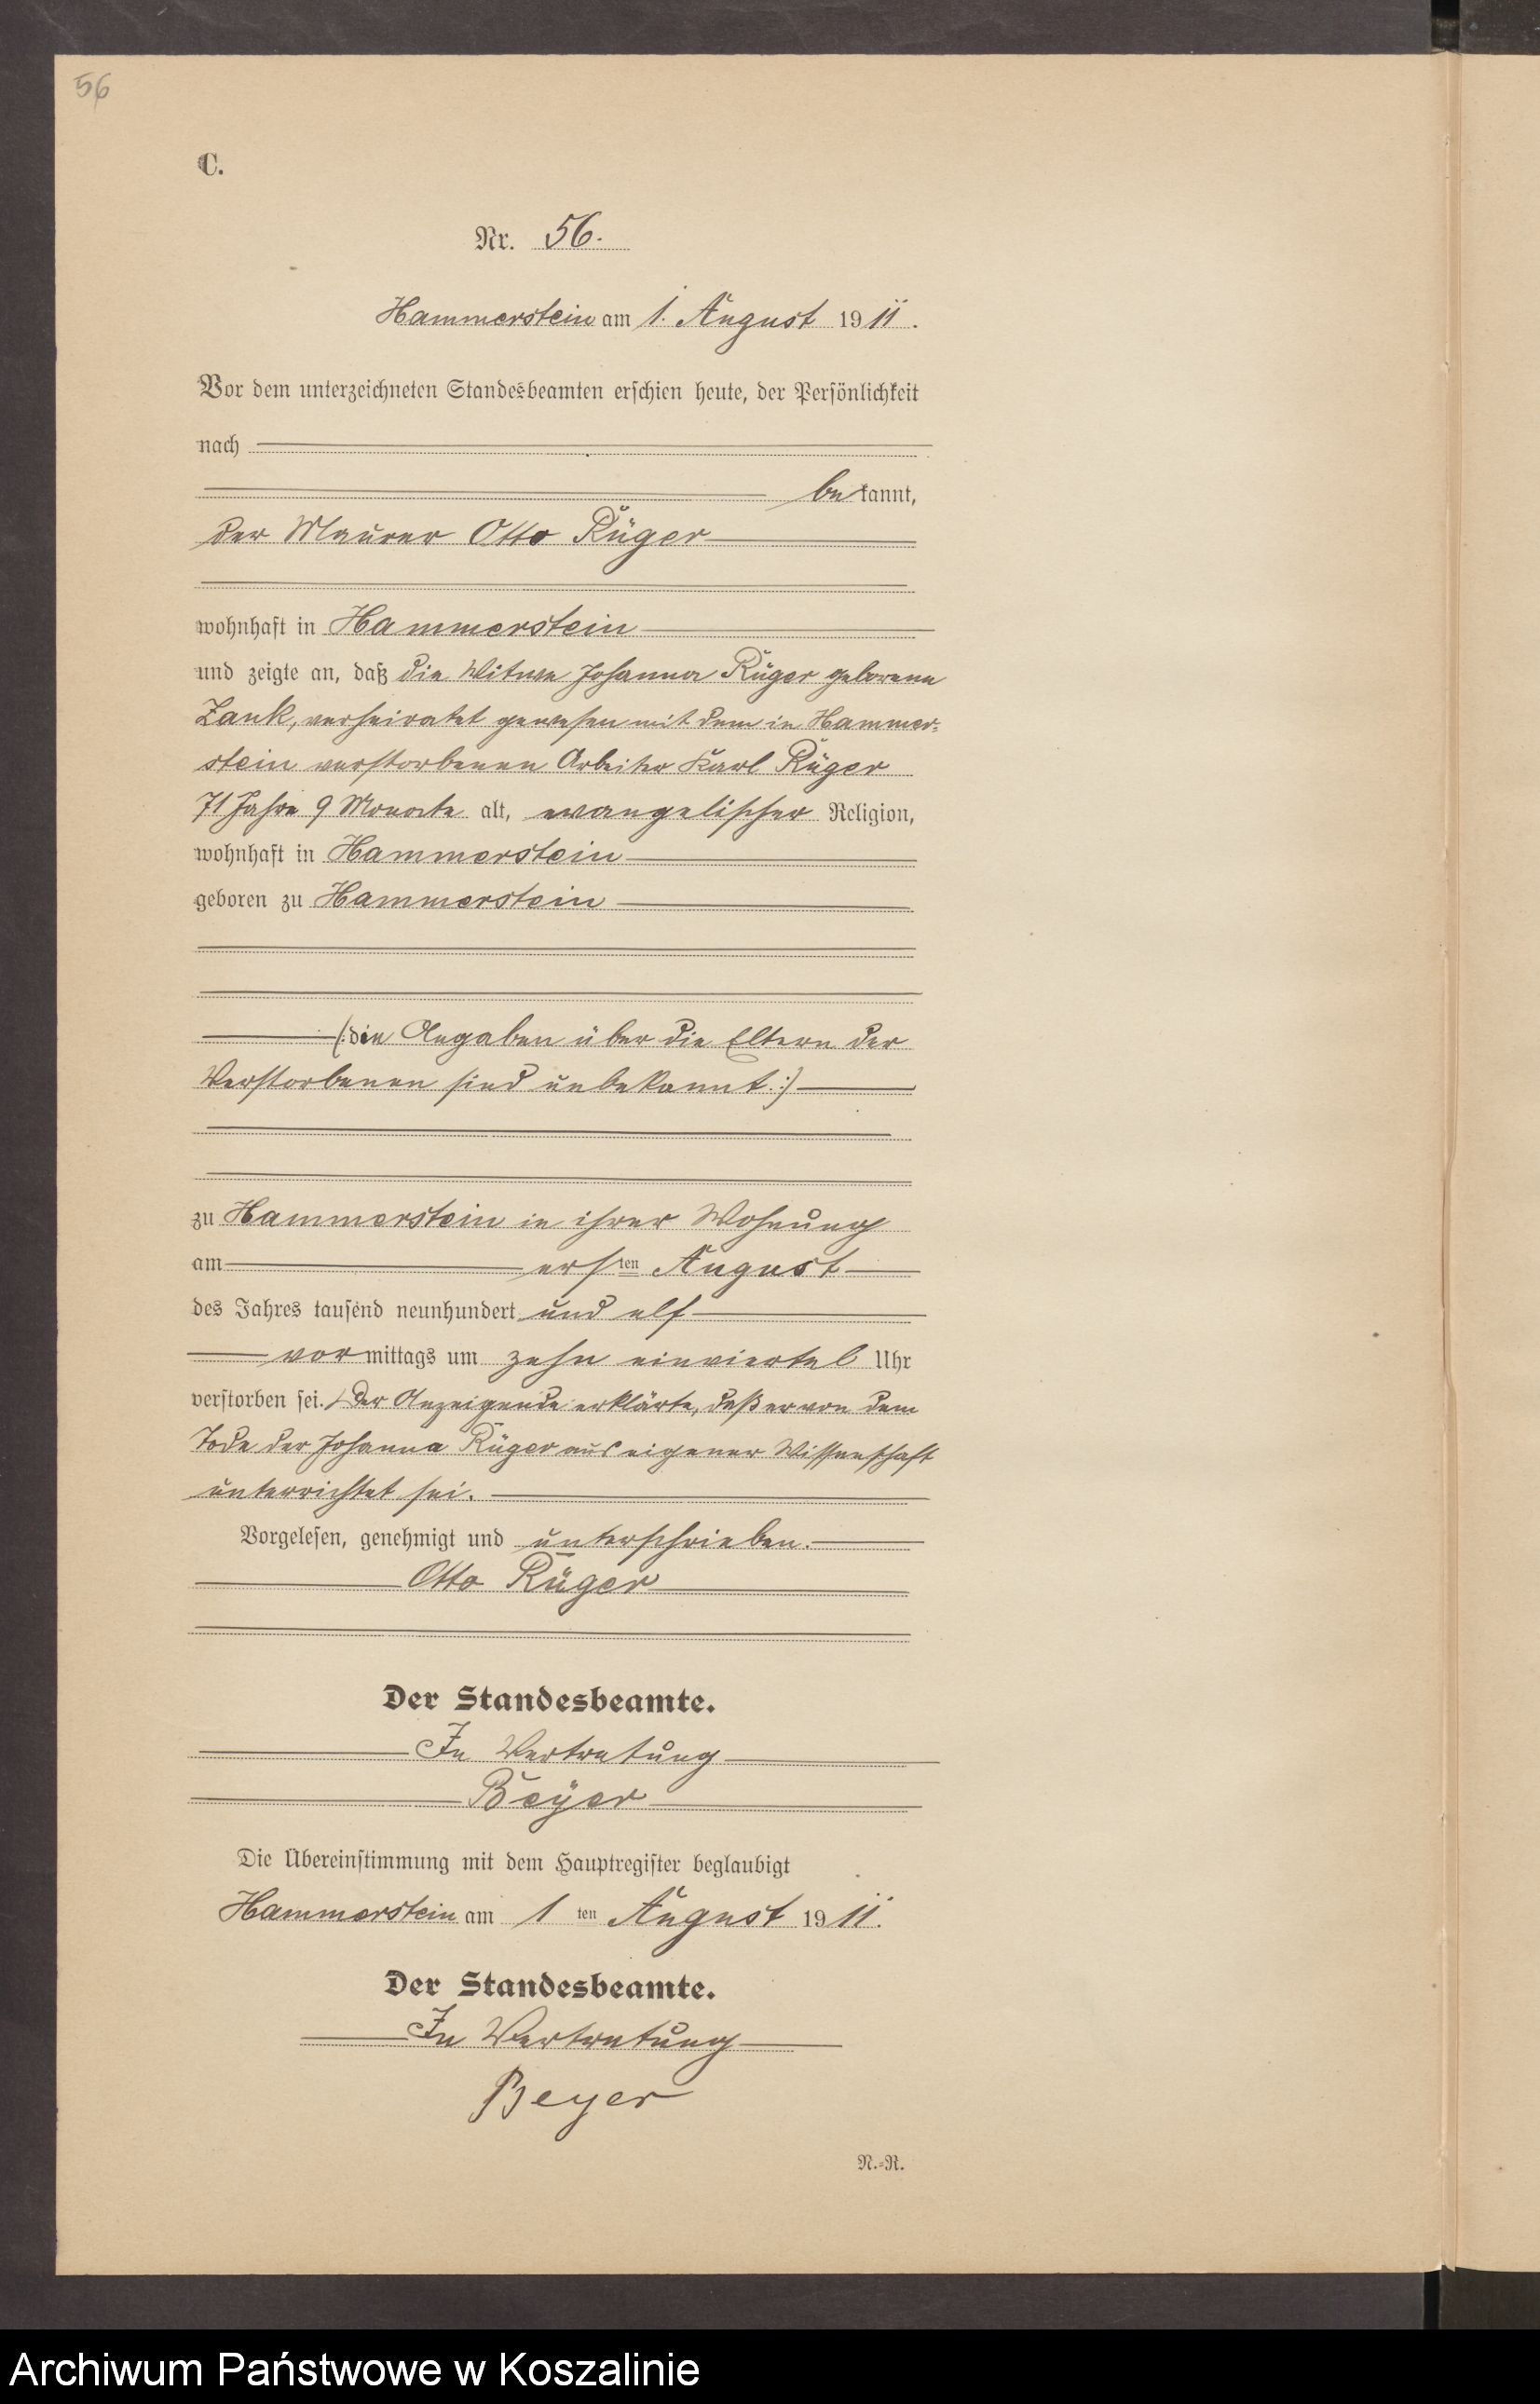 56
C.
Nr. 56.
Hammerstein am 1. August 1911.
Vor dem unterzeichneten Standesbeamten erschien heute, der Persönlichkeit
nach
bekannt,
der Maurer Otto Rüger
wohnhaft in Hammerstein
und zeigte an, daß die Witwe Johanna Rüger geborene
Zank, verheiratet gewesen mit dem in Hammer-
stein verstorbenen Arbeiter Karl Rüger
71 Jahre 9 Monate alt, evangelischer Religion,
wohnhaft in Hammerstein
geboren zu Hammerstein
(:die Angaben über die Eltern der
Verstorbenen sind unbekannt.:)
zu Hammerstein in ihrer Wohnung
am ersten August
des Jahres tausend neunhundert und elf
vormittags um zehn einviertel Uhr
verstorben sei. Der Anzeigende erklärte, daß er von dem
Tode der Johanna Rüger aus eigener Wissenschaft
unterrichtet sei.
Vorgelesen, genehmigt und unterschrieben.
Otto Rüger
Der Standesbeamte.
In Vertretung
Beyer
Die Übereinstimmung mit dem Hauptregister beglaubigt
Hammerstein am 1ten August 1911.
Der Standesbeamte.
In Vertretung
Beyer
N.-R.
Archiwum Państwowe w Koszalinie